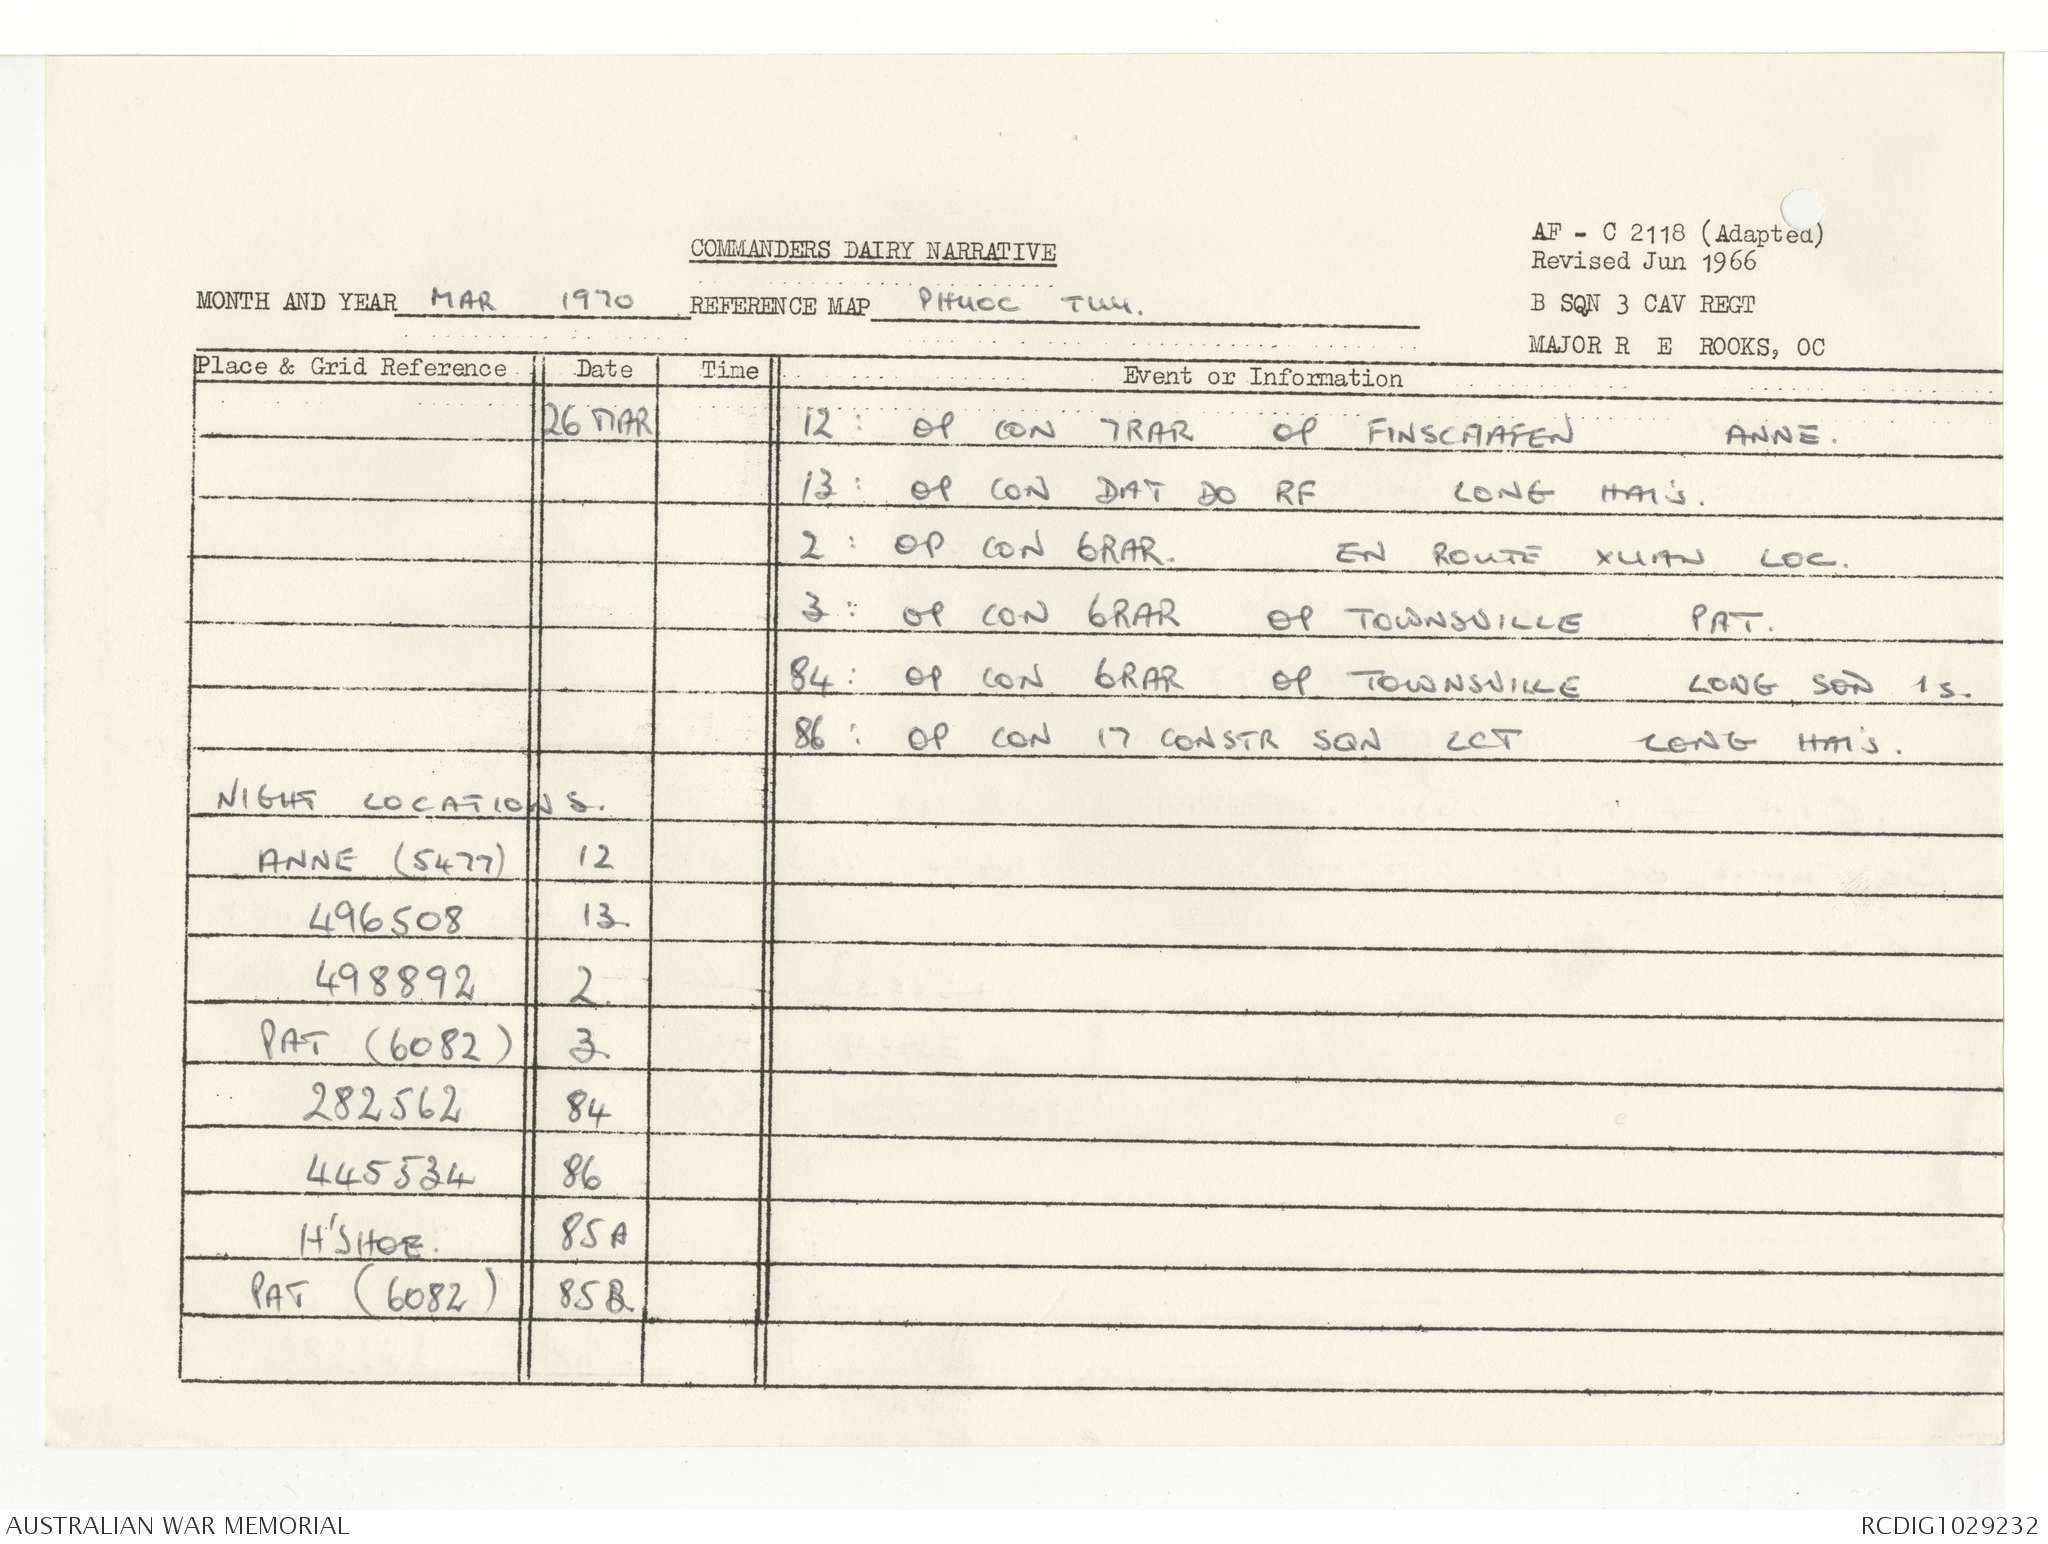 COMMANDERS DAIRY NARRATIVE
AF - C 2118 (Adapted)
Revised Jun 1966
MONTH AND YEAR MAR 1970 REFERENCE MAP PHUOC TUY.
B SQN 3 CAV REGT
MAJOR R E ROOKS, OC
Place & Grid Reference Date Time Event or Information
26 MAR 12: OP CON 7RAR OP FINSCHAFEN ANNE.
13: OP CON DAT DO RF LONG HAI'S.
2: OP CON 6RAR. EN ROUTE XUAN LOC.
3: OP CON 6RAR OP TOWNSVILLE PAT.
84: OP CON 6RAR OP TOWNSVILLE LONG SON IS.
86: OP CON 17 CONSTR SQN LCT LONG HAI'S.
NIGHT LOCATIONS.
ANNE (5477) 12
496508 13
498892 2
PAT (6082) 3
282562 84
445534 86
H'SHOE. 85A
PAT (6082) 85B
AUSTRALIAN WAR MEMORIAL RCDIG1029232